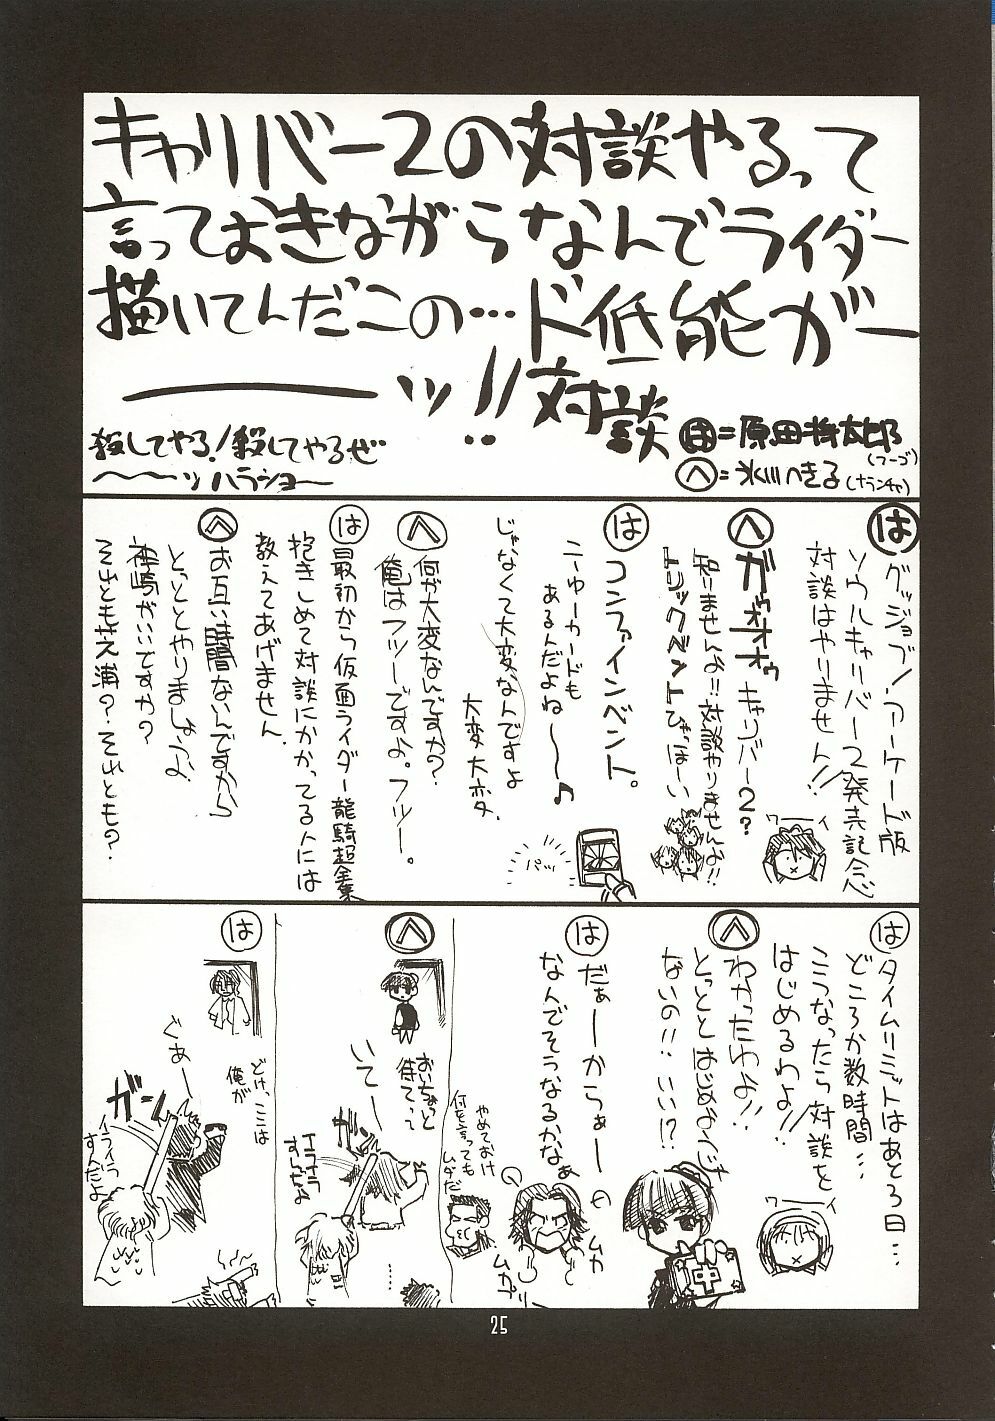 キャリバー2の対談やるって
言っておきながらなんでライダー
描いてんだこの…ド低能がー
――ッ!!対談
殺してやる!殺してやるぜ
〜〜〜ッハラショー
は=原田将太郎
(フーゴ)
へ=氷川へきる(ナランチャ)
は
グッジョブ!アーケード版
ソウルキャリバー2発売記念
対談はやりません!!
ワーイ
へ
ガゥオオオゥ キャリバー2?
知りませんよ!!対談やりませんよ!!
トリックベントひゃっほーい
は
コンファインベント。
ニューカードも
あるんだよね〜〜♪
パッ
じゃなくて大変なんですよ
大変大変。
へ
何が大変なんですか?
俺はフツーですよ。フツー。
は
最初から仮面ライダー龍騎超全集
抱きしめて対談にかかってる人には
教えてあげません。
へ
お互い時間ないんですから
とっととやりましょうよ
神崎がいいですか?
それとも芝浦?それとも?
は
タイムリミットはあと3日…
どころか数時間…
こうなったら対談を
はじめるわよ!!
ワーイ
へ
わかったわよ!!
とっととはじめようじゃ
ないの!!いい!?
中
は
だぁーからぁー
なんでそうなるかなぁ
ムカ
ムカ
やめておけ
何を言っても
ムダだ
へ
おいちょっと
待てって
いてー
ガンッ
イライラ
すんだよ
は
どけ、ここは
俺が
ぐぁー
ガンッ
イライラ
すんだよ
25